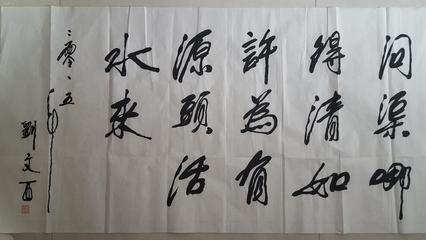 问渠哪
得清如
許為有
源頭活
水來
二零一五
劉文西